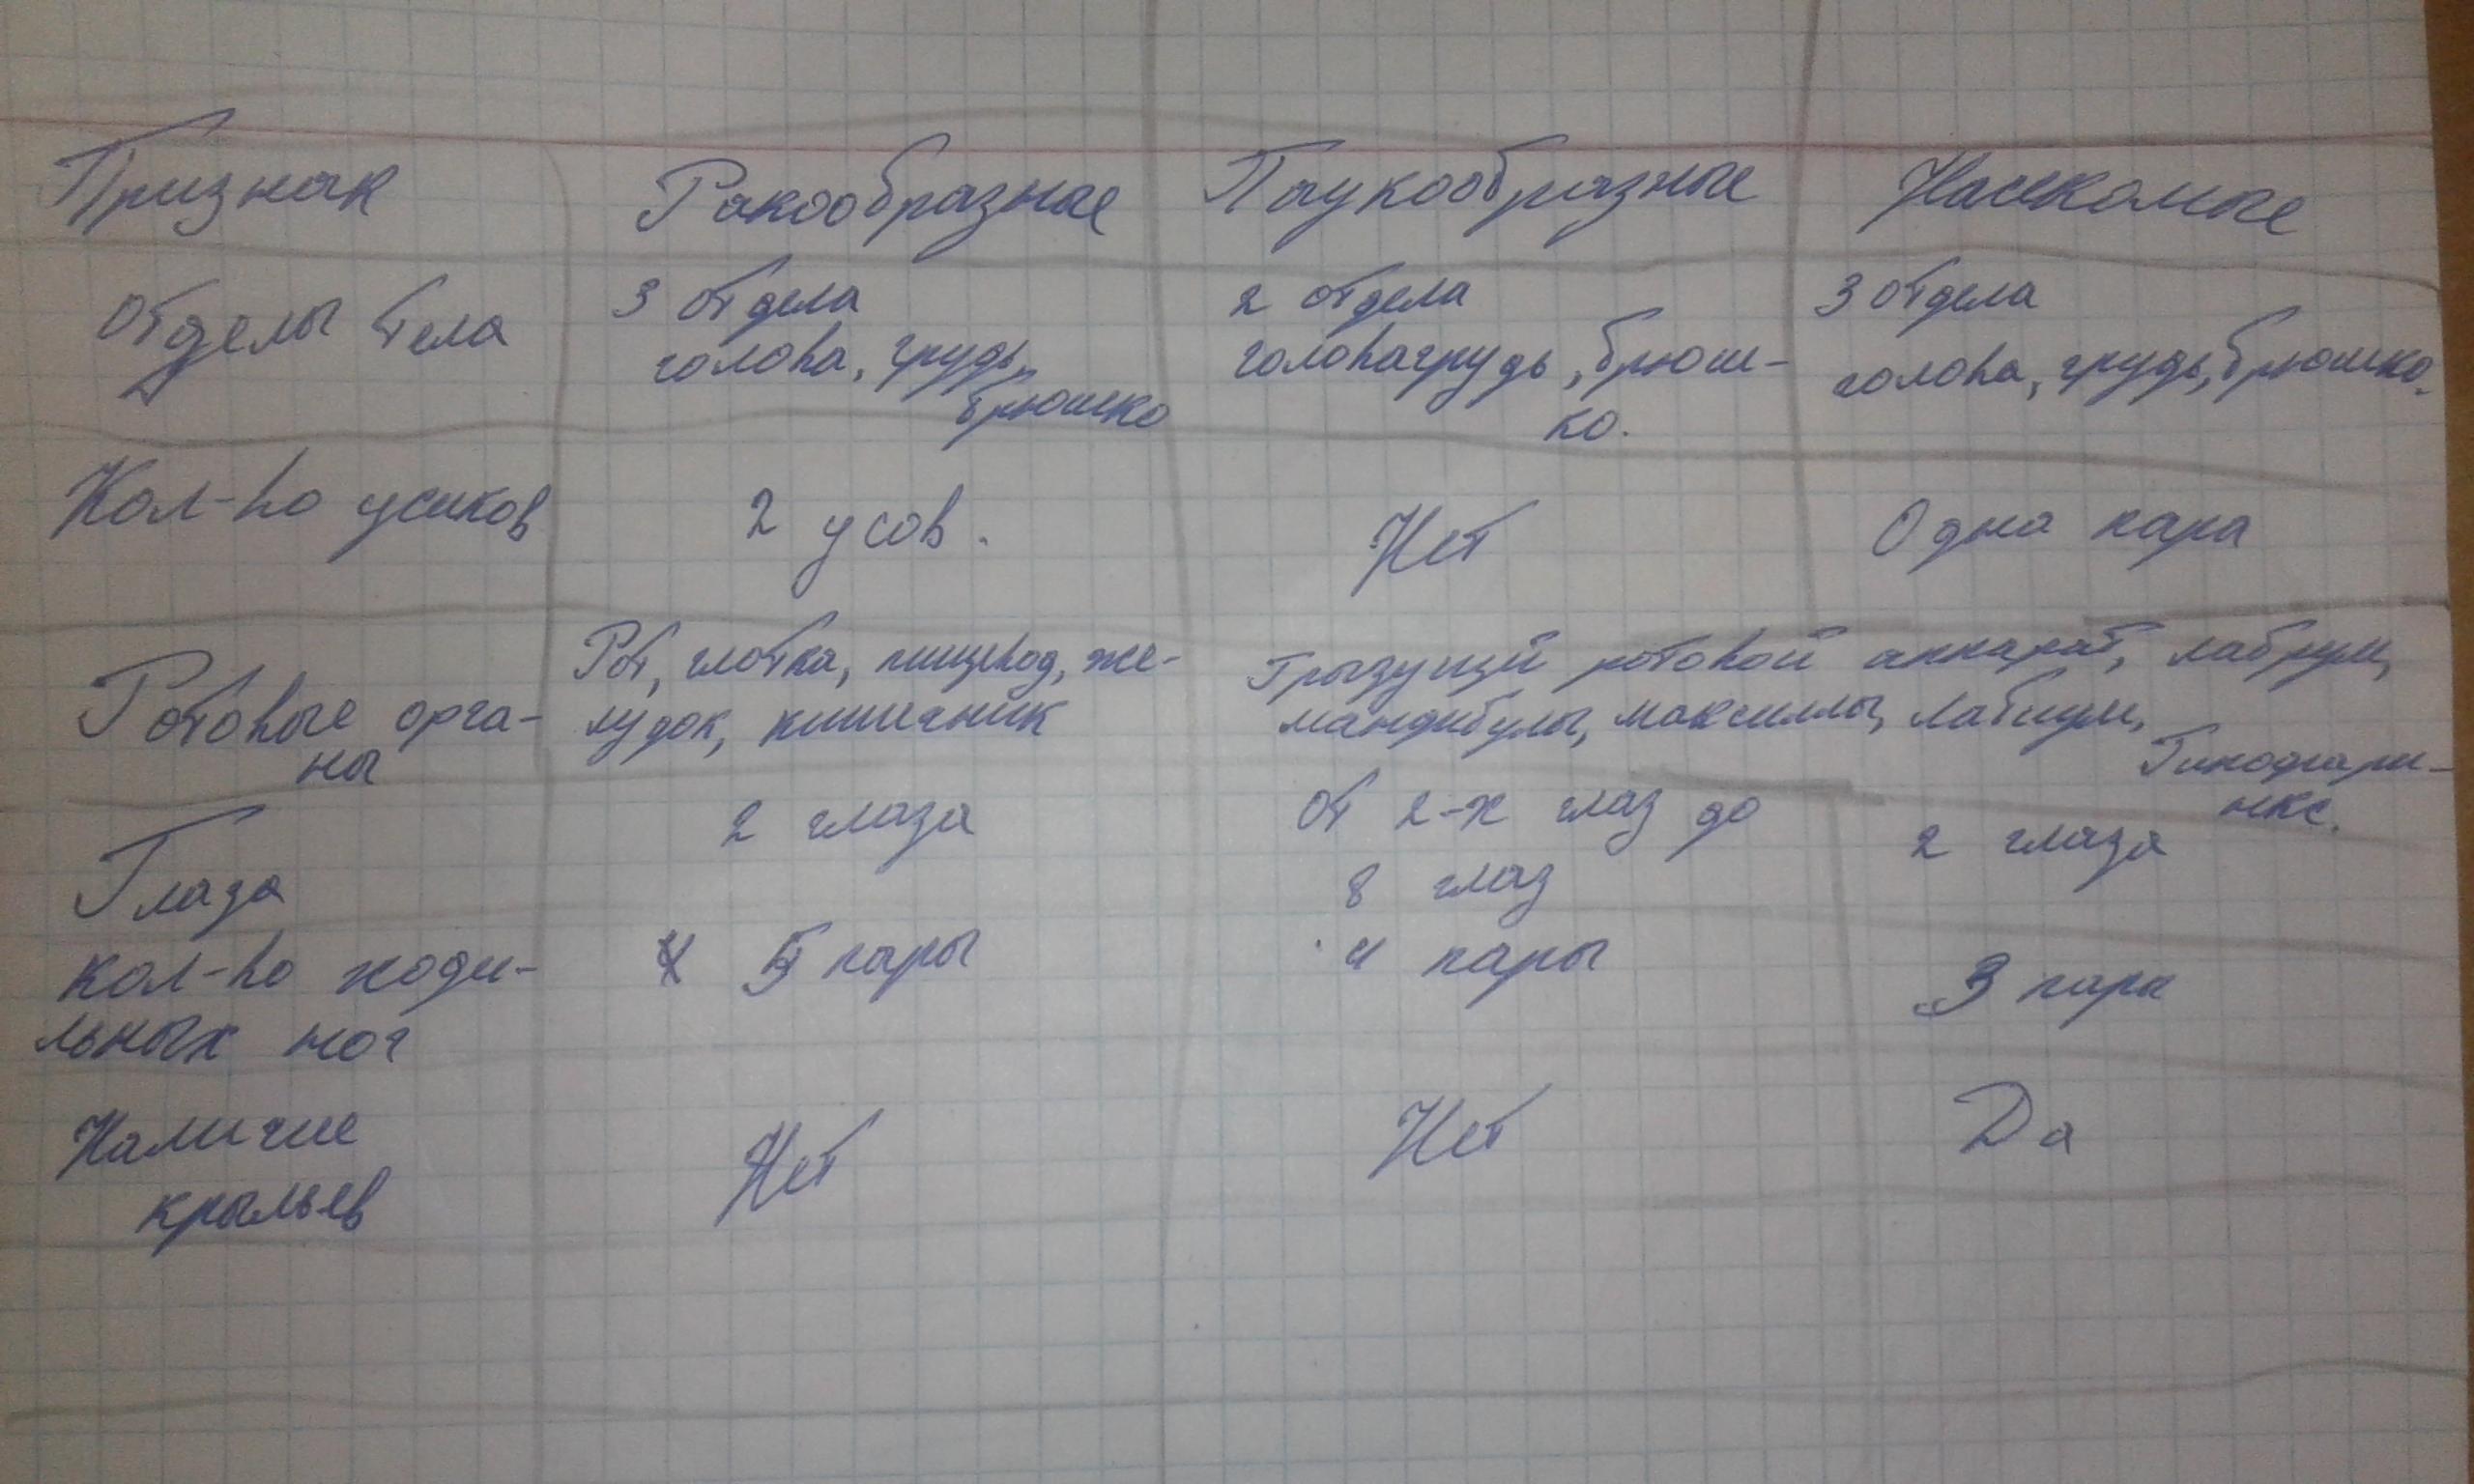 Признак Ракообразные Паукообразные Насекомые
Отделы тела
3 отдела
голова, грудь,
брюшко
2 отдела
головагрудь, брюш-
ко.
3 отдела
голова, грудь, брюшко.
Кол-во усиков 2 усов. Нет Одна пара
Ротовые орга-
ны
Рот, глотка, пищевод, же-
лудок, кишечник
Грызущий ротовой аппарат, лабрум,
мандибулы, максиллы, лабиум,
Гипофари-
нкс.
Глаза
2 глаза
от 2-х глаз до
8 глаз
2 глаза
Кол-во ходи-
льных ног
5 пары
4 пары
3 пары
Наличие
крыльев
Нет
Нет
Да